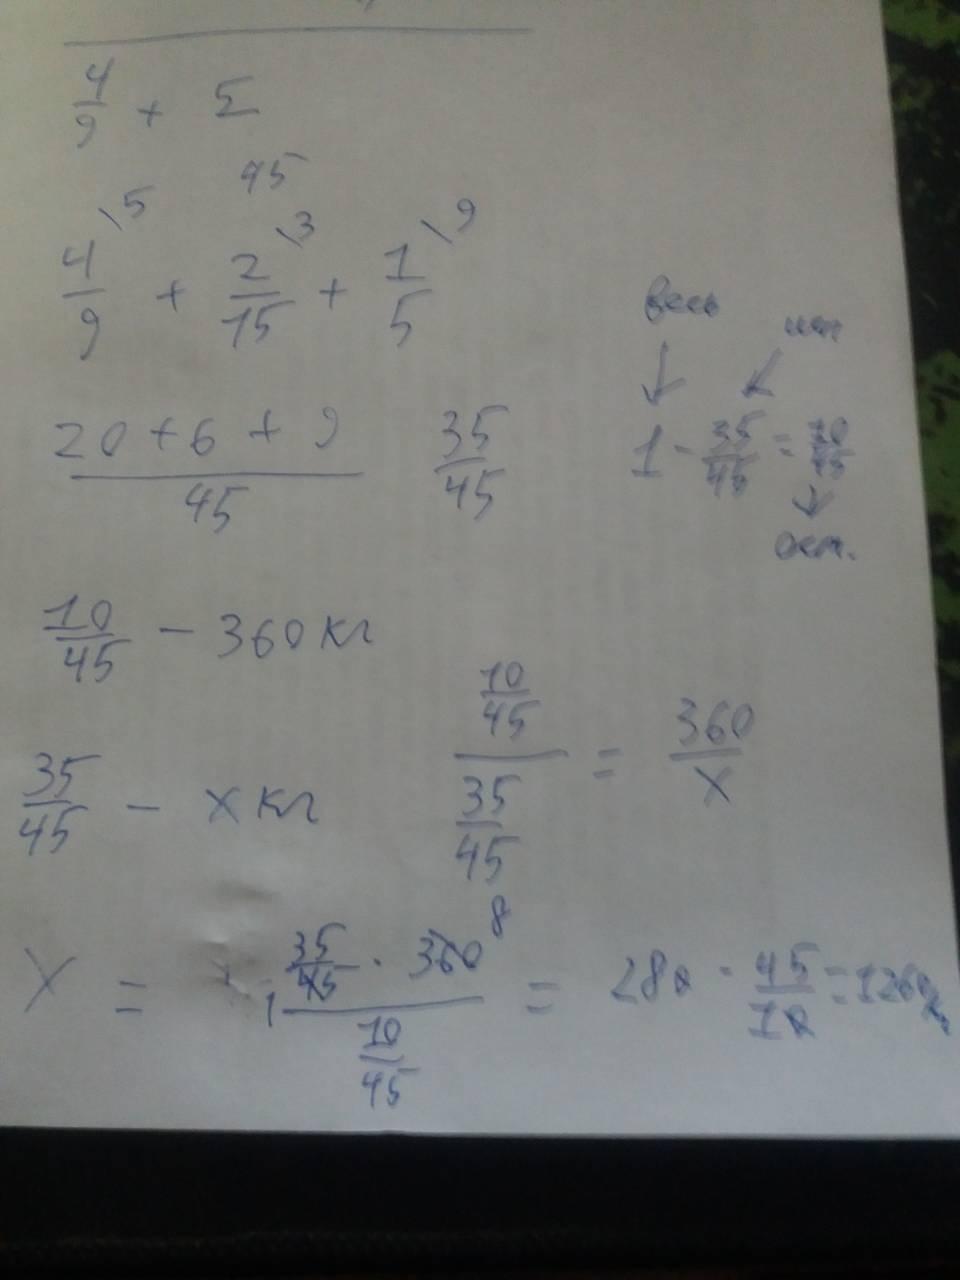 4/9 + Σ
45
4/9 \5 + 2/15 \3 + 1/5 \9
весь
20 + 6 + 9 / 45 35/45
1 - 35/45 = 10/45
ост.
10/45 - 360 кг
35/45 - x кг
10/45 / 35/45 = 360/x
x = 35/45 · 360 8 / 10/45 = 280 · 45/10 = 1260